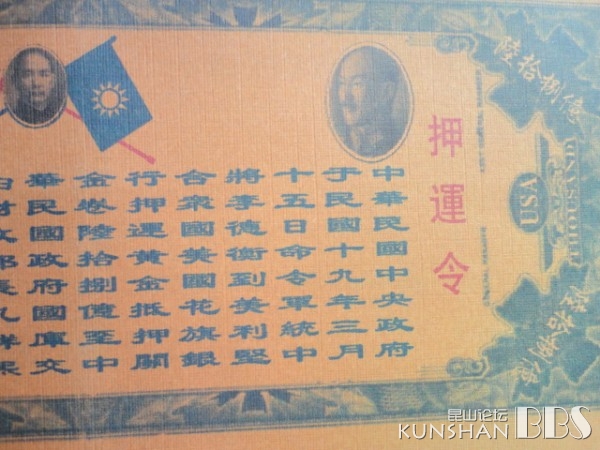 陸拾捌億
押運令
USA
THOUSAND
陸拾捌億
中華民國中央政府
于民國十九年三月
十五日命令軍統中
將李德衡到美利堅
合衆國美國花旗銀
行押運黃金抵押關
金卷陸拾捌億至中
華民國政府國庫交
昆山论坛
KUNSHAN BBS